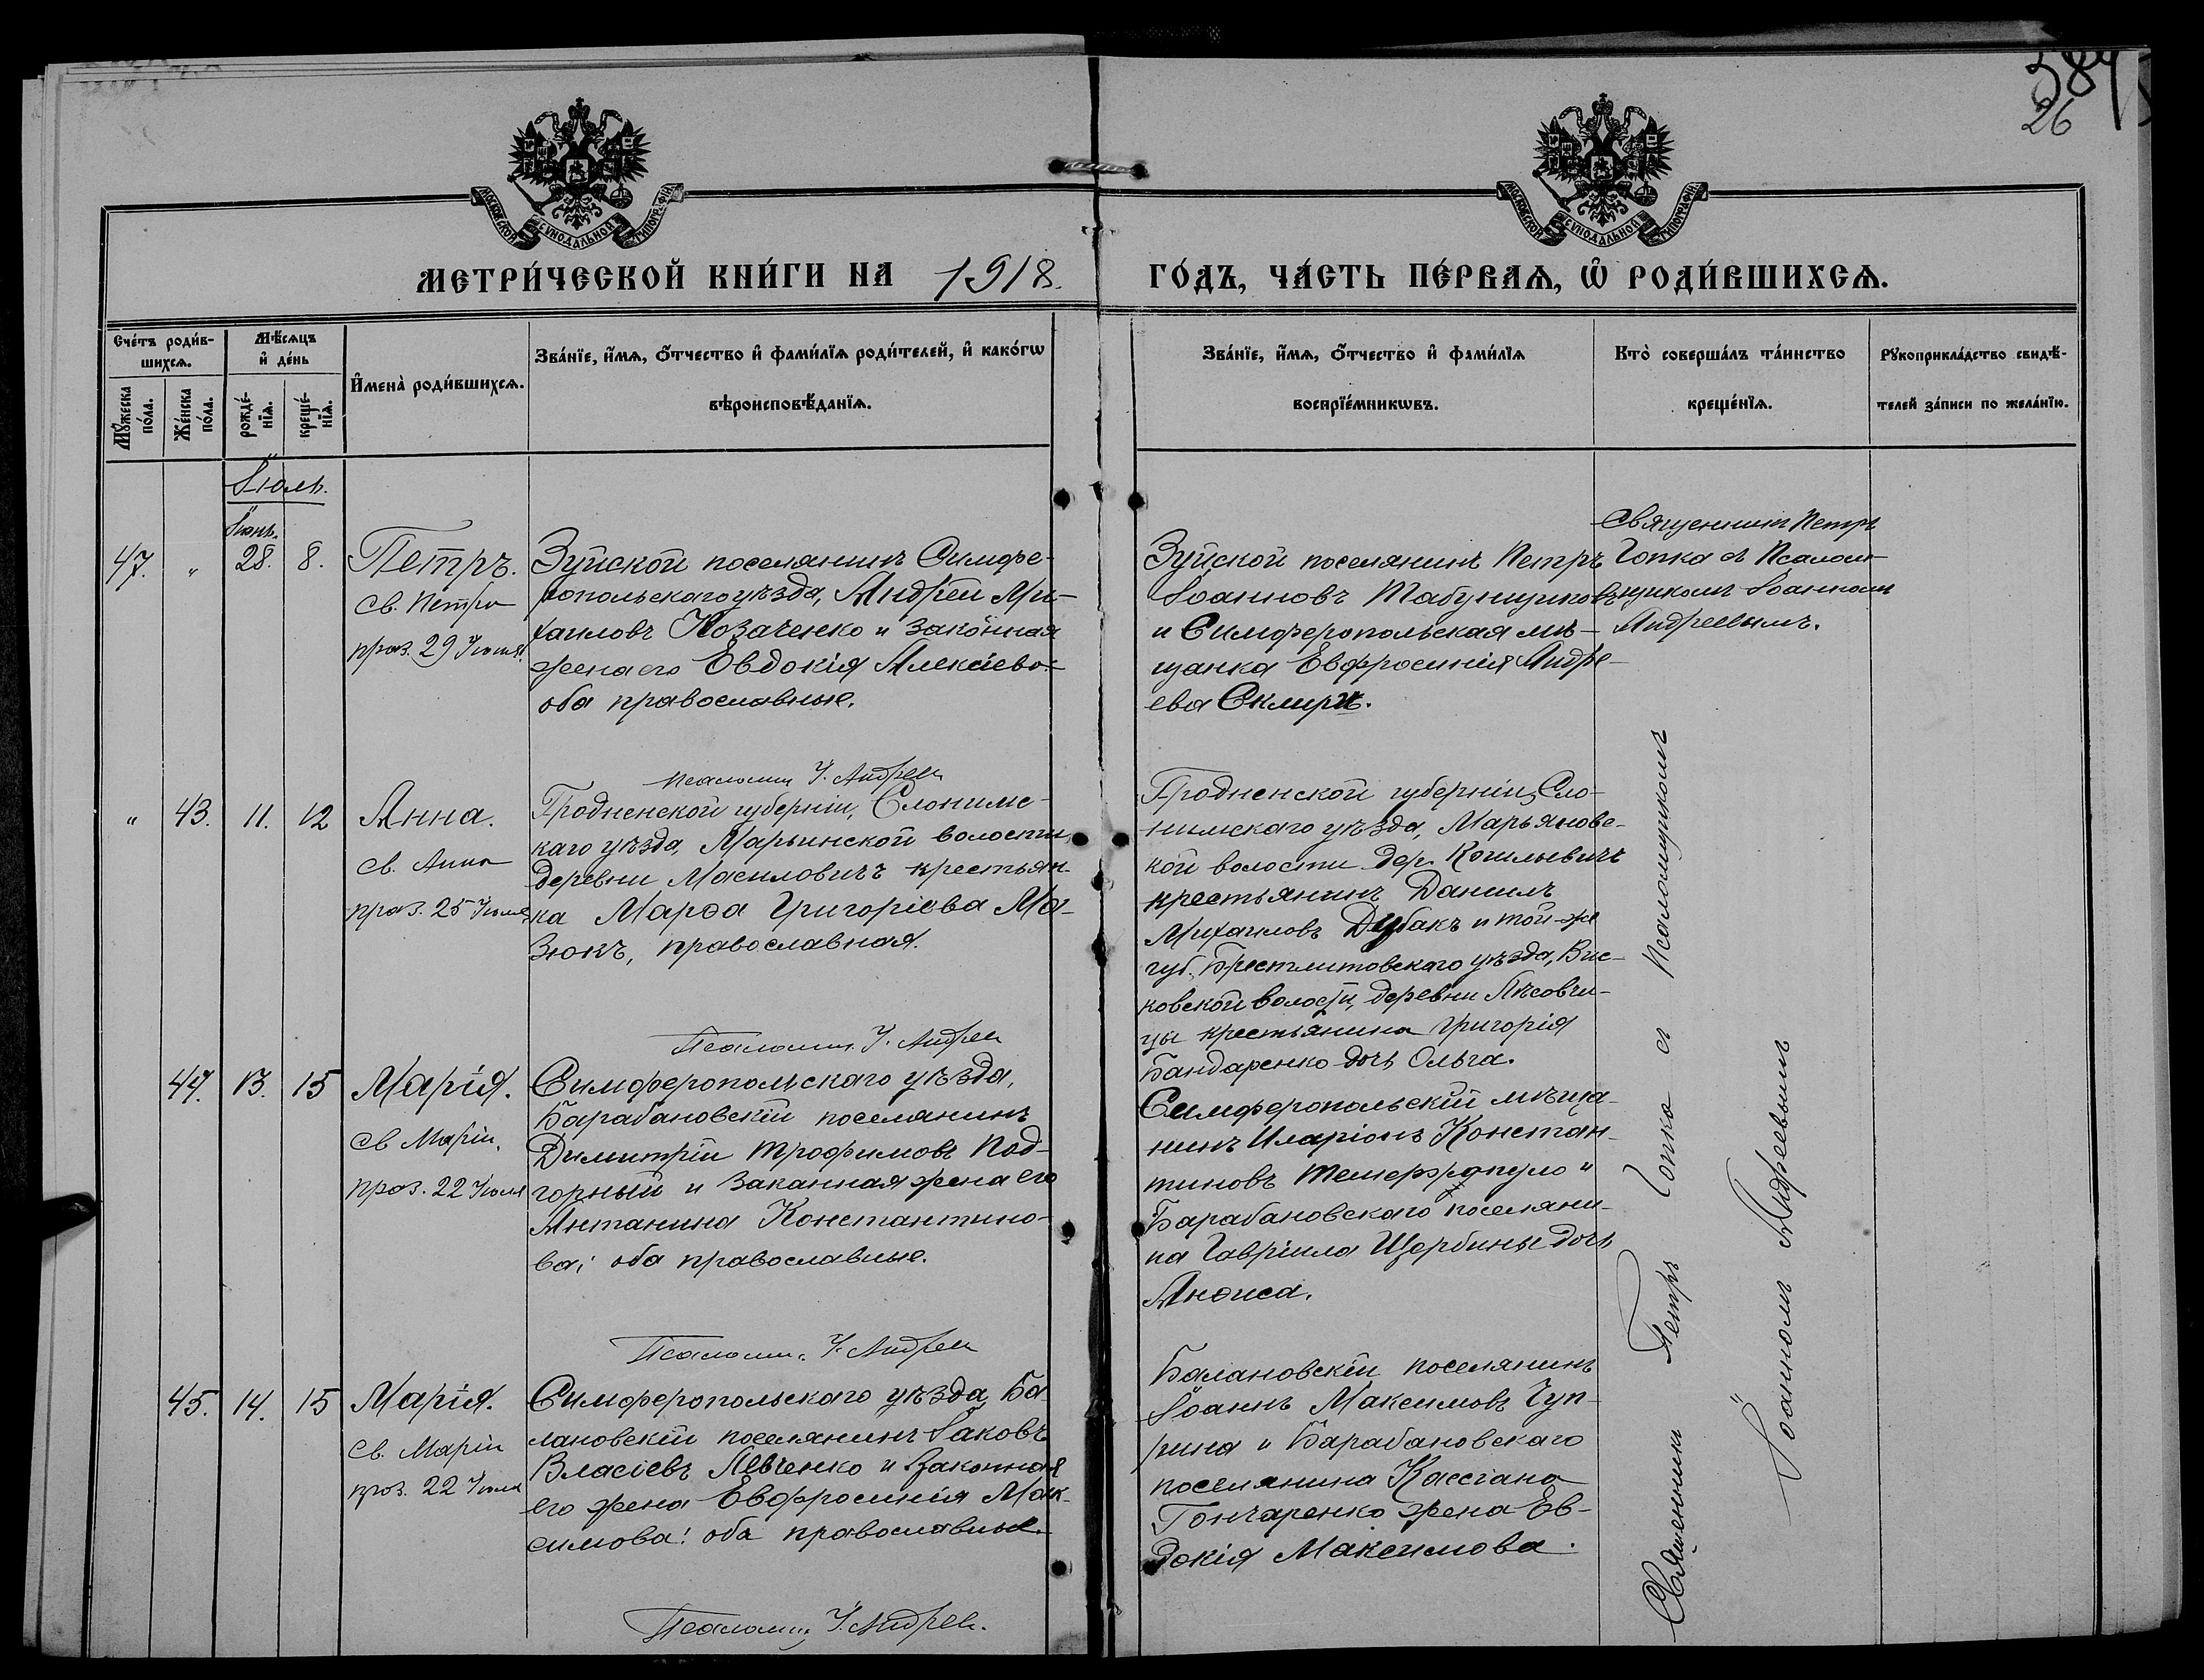 384
26
МОСКОВСКОЙ СѴНОДАЛЬНОЙ ТИПОГРАФІИ
МОСКОВСКОЙ СѴНОДАЛЬНОЙ ТИПОГРАФІИ
МЕТРИ́ЧЕСКОЙ КНИ́ГИ НА 1918. ГО́ДЪ, ЧА́СТЬ ПЕ́РВАѦ, Ѡ҆ РОДИ́ВШИХСѦ.
Сче́тъ роди́в-
шихсѧ.
Мꙋ́жеска
по́ла.
Же́нска
по́ла.
Мѣ́сѧцъ
и҆ де́нь
рожде́-
нїѧ.
креще́-
нїѧ.
И҆мена̀ роди́вшихсѧ.
Зва́нїе, и҆́мѧ, ѻ҆́тчество и҆ фами́лїѧ роди́телей, и҆ како́гѡ
вѣроисповѣ́данїѧ.
Зва́нїе, и҆́мѧ, ѻ҆́тчество и҆ фами́лїѧ
воспрїе́мникѡвъ.
Кто̀ соверша́лъ та́инство
креще́нїѧ.
Рꙋкоприкла́дство свидѣ́-
телей за́писи по жела́нїю.
Іюль.
Іюнь.
47. " 28. 8. Петръ.
св. Петра
праз. 29 Іюня.
Зуйской поселянинъ Симфе-
ропольскаго уѣзда, Андрей Ми-
хаиловъ Козаченко и законная
жена его Евдокія Алексіева:
оба православные.
Псаломщ І. Андреев
Зуйской поселянинъ Петръ
Іоанновъ Табунщиковъ
и Симферопольская мѣ-
щанка Евфросинія Андре-
ева Скляръ.
Священникъ Петръ
Гопка съ Псалом-
щикомъ Іоанномъ
Андреевымъ.
" 43. 11. 12 Анна.
св. Анна
праз. 25 Іюля
Гродненской губерніи, Слонимс-
каго уѣзда, Марьинской волости,
деревни Масиловичъ крестьян-
ка Марѳа Григоріева Ма-
зюкъ, православная.
Псаломщ. І. Андреев
Гродненской губерніи, Сло-
нимскаго уѣзда, Марьяновс-
кой волости дер. Косильевичъ
крестьянинъ Даниилъ
Михаиловъ Дубакъ и той-же
губ. Брестлитовскаго уѣзда, Вис-
ковской волости, деревни Лѣсовчи-
цы крестьянина Григорія
Бандаренко дочь Ольга.
44. 13. 15 Марія.
св Маріи.
праз. 22 Іюля
Симферопольскаго уѣзда,
Барабановскій поселянинъ
Димитрій Трофимовъ Под-
горный и Законная жена его
Антанина Константино-
ва; оба православные.
Псаломщ. І. Андреев
Симферопольскій мѣща-
нинъ Иларіонъ Констан-
тиновъ и
Барабановскаго поселяни-
на Гавріила Щербины дочь
Анѳиса.
45. 14. 15 Марія.
св. Маріи
праз. 22 Іюля
Симферопольскаго уѣзда, Ба
лановскій поселянинъ Іаковъ
Власіевъ Левченко и Законная
его жена Евфросинія Мак-
симова: оба православные.
Псаломщ І. Андреев.
Балановскій поселянинъ
Іоаннъ Максимовъ Чуп-
рина и Барабановскаго
поселянина Кассіана
Гончаренко жена Ев-
докія Максимова.
Священникъ Петръ Гопка съ Псаломщикомъ
Іоанномъ Андреевымъ